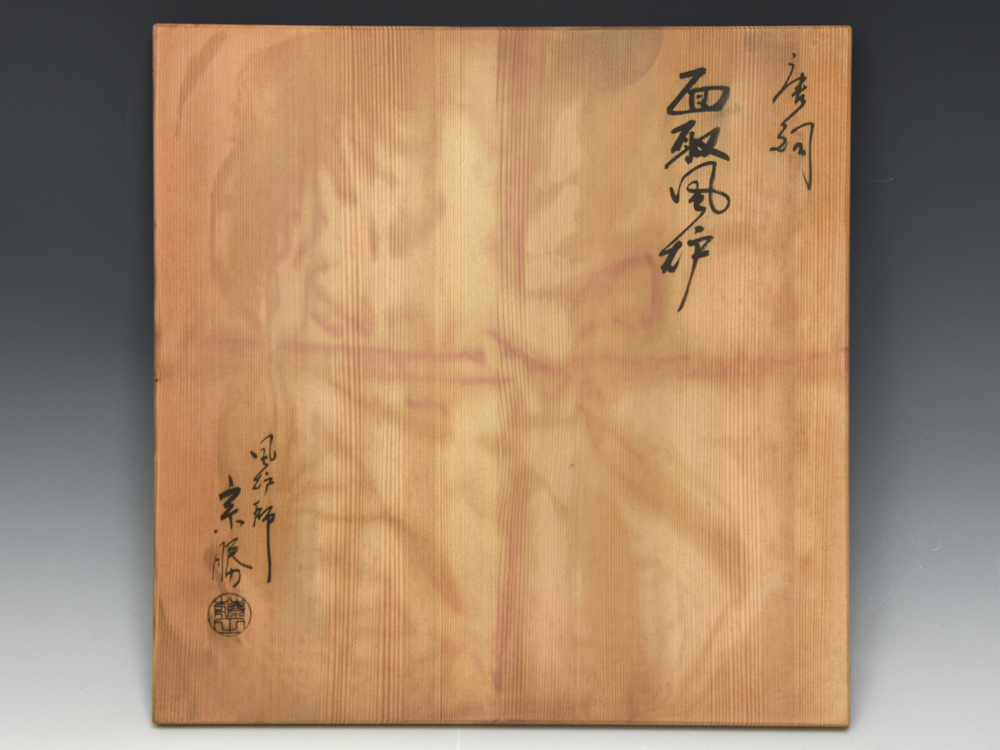 唐銅
面取風炉
風炉師
宗勝